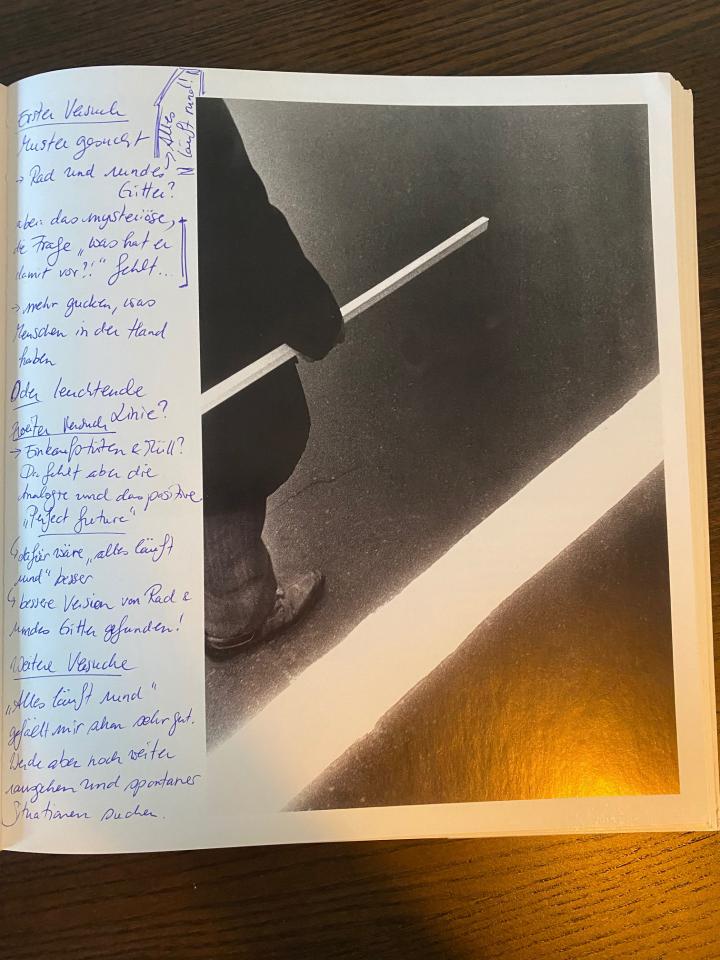 Erster Versuch
Muster gesucht
→ Alles
läuft rund!
→ Rad und rundes
Gitter?
aber: das mysteriöse,
die Frage „was hat er
damit vor?!" fehlt...
→ mehr gucken, was
Menschen in der Hand
haben
Oder leuchtende
Linie?
Zweiter Versuch
→ Einkaufstüten & Müll?
Da fehlt aber die
Analogie und das positive
„Perfect future"
↳ dafür wäre „alles läuft
rund" besser
↳ bessere Version von Rad &
rundes Gitter gefunden!
Weitere Versuche
„Alles läuft rund"
gefällt mir schon sehr gut.
Werde aber noch weiter
rausgehen und spontaner
Situationen suchen.